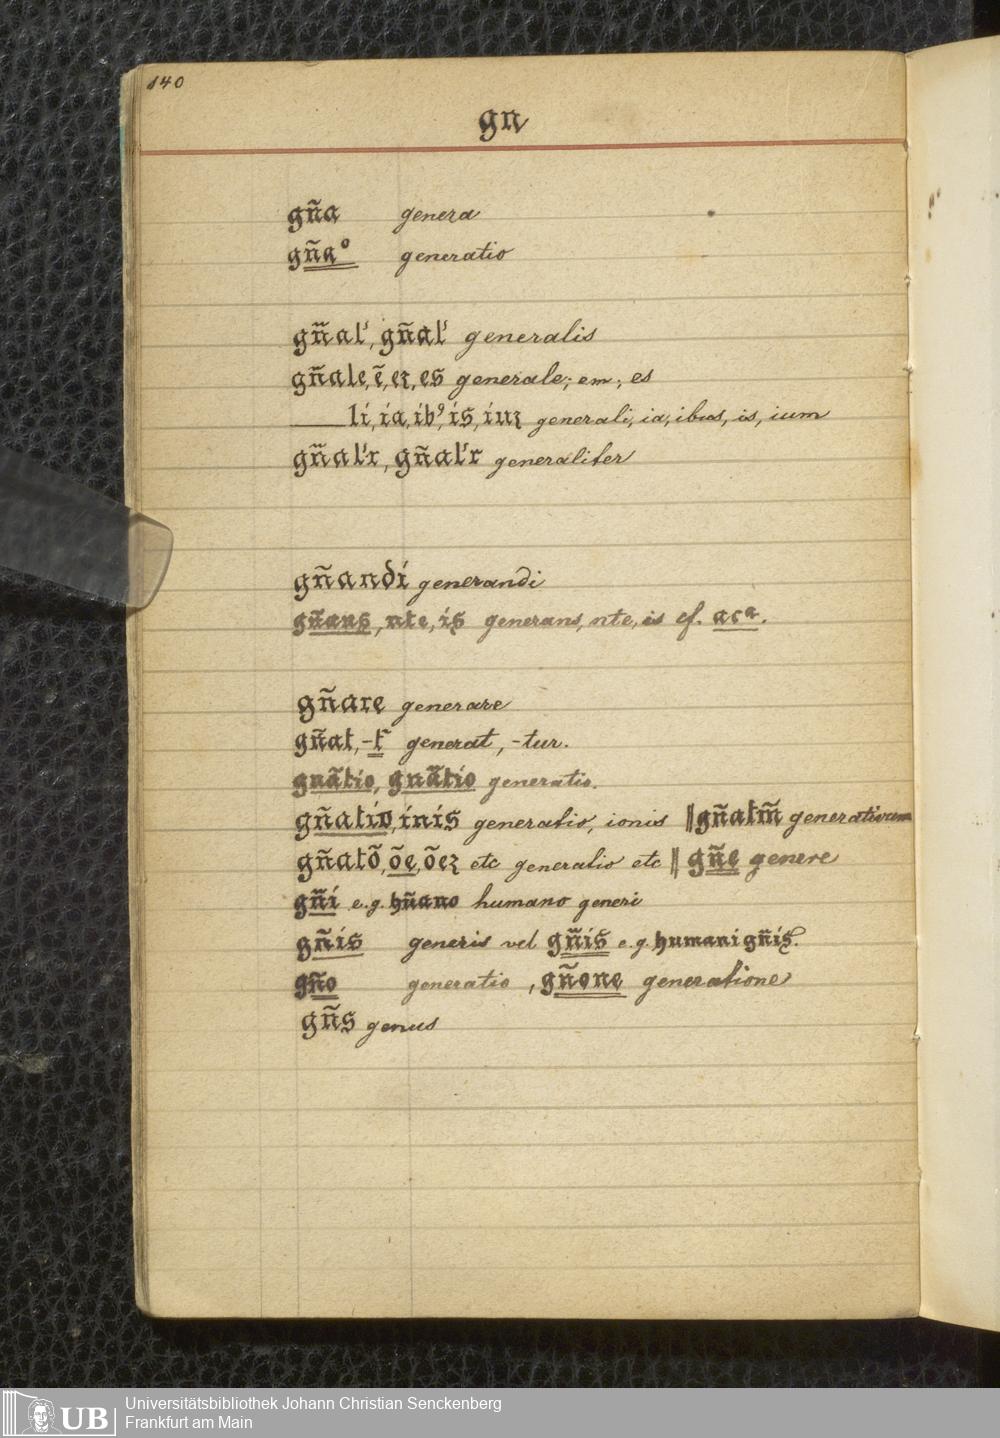 140
gn
gña genera
gña° generatio
gñal', gñal' generalis
gñale, ē, eꝫ, es generale; em; es
li, ia, ibꝰ, is, iuꝫ generali, ia, ibus, is, ium
gñal'r, gñal'r generaliter
gñandi generandi
gñans, nte, is generans, nte, is cf. acª.
gñare generare
gñat, -t᷑ generat, -tur.
gnãtio, gnãtio generatio.
gñatio, inis generatio, ionis || gñatm̃ generativum
gñatõ, õe, õeꝫ etc generatio etc || gñe genere
gñi e.g. hũano humano generi
gñis generis vel gñis e.g. humani gñis.
gño generatio, gñone generatione
gñs genus
UB Universitätsbibliothek Johann Christian Senckenberg
Frankfurt am Main